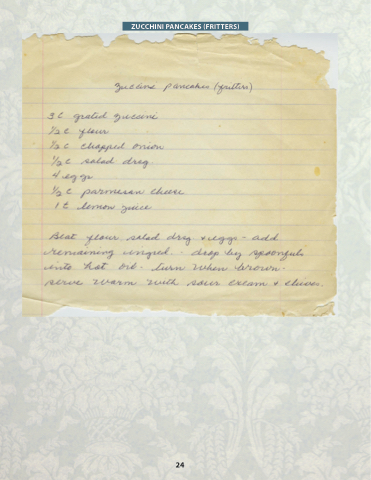 ZUCCHINI PANCAKES (FRITTERS)
zuccini pancakes (fritters)
3 C grated zuccini
1/3 C flour
1/3 C chopped onion
1/2 C salad drsg.
4 eggs
1/2 C parmesan cheese
1 t lemon juice
Beat flour salad drsg & eggs - add
remaining ingred. - drop by spoonfuls
into hot oil. turn when brown.
serve warm with sour cream & chives.
24